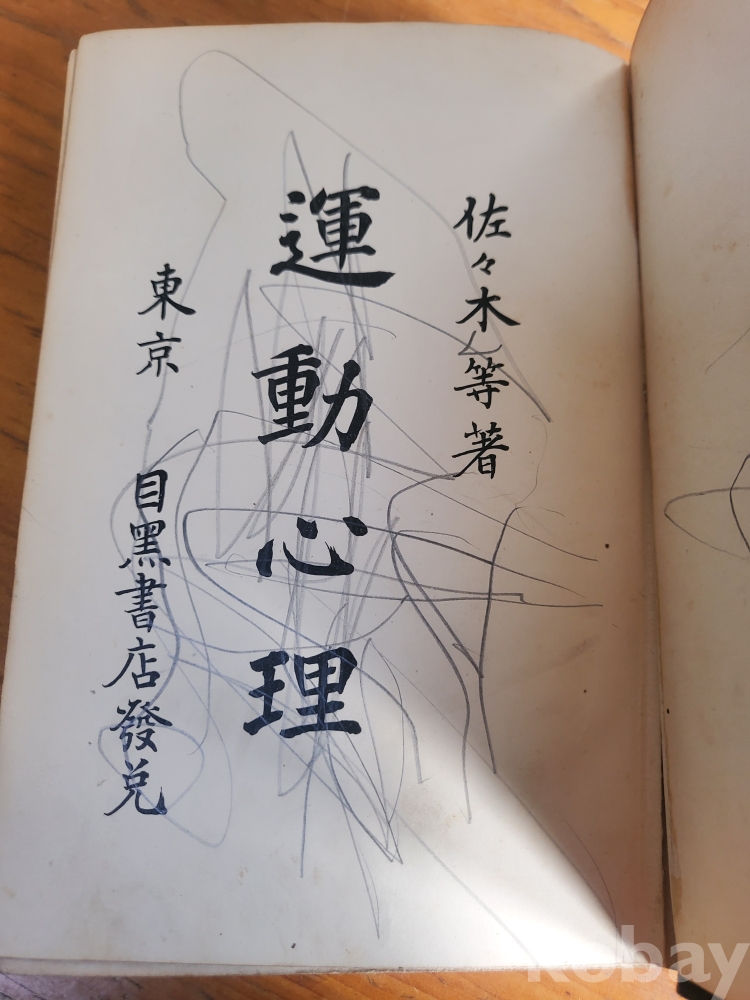 佐々木等著
運動心理
東京 目黑書店發兌
kobay